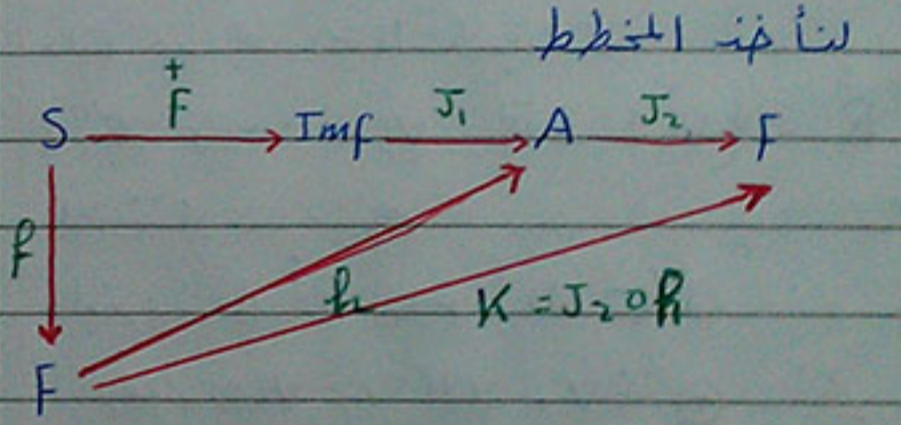 لنأخذ المخطط
+
S F Imf J₁ A J₂ F
f
h K = J₂ o h
F